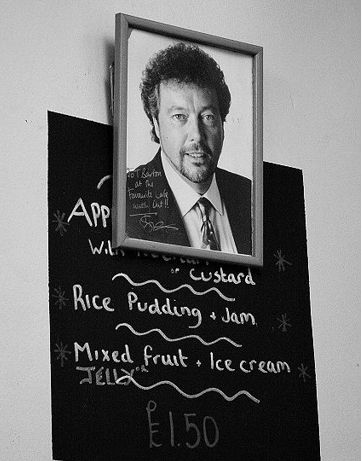 TO T Barton
at the
Favourite cafe
with Out!!
App
With
or Custard
Rice Pudding + Jam
Mixed fruit + Ice cream
JELLY or
£1.50